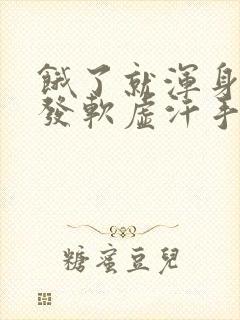 餓了就渾身
發軟虛汗手
糖蜜豆兒